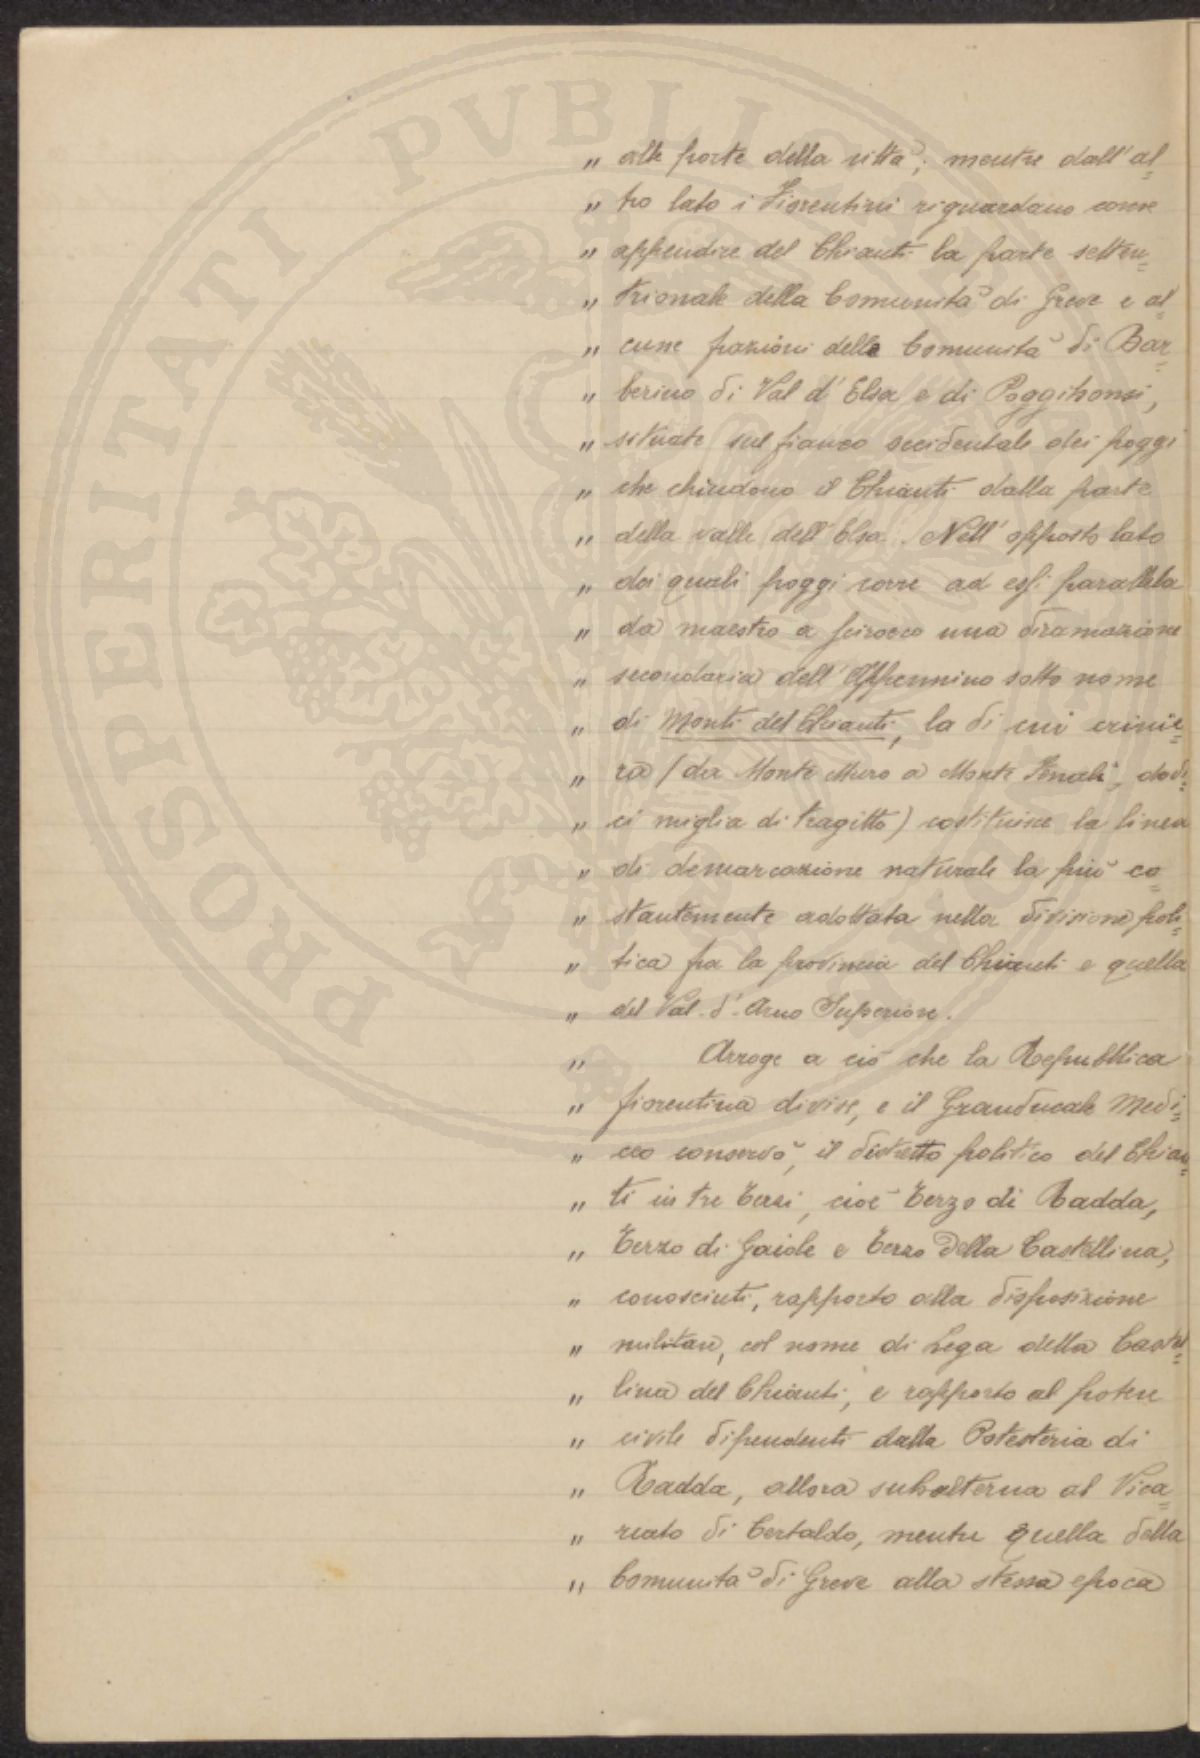 „ alle porte della città; mentre dall'al=
„ tro lato i Fiorentini riguardano come
„ appendice del Chianti la parte setten=
„ trionale della Comunità di Greve e al=
„ cune frazioni delle Comunità di Bar=
„ berino di Val d'Elsa e di Poggibonsi,
„ situate sul fianco occidentale dei poggi
„ che chiudono il Chianti dalla parte
„ della valle dell'Elsa. Nell'opposto lato
„ dei quali poggi corre ad essi parallela
„ da maestro a scirocco una diramazione
„ secondaria dell'Appennino sotto nome
„ di Monti del Chianti, la di cui crinie=
„ ra (da Monte Muro a Monte Fenali, dodi=
„ ci miglia di tragitto) costituisce la linea
„ di demarcazione naturale la più co=
„ stantemente adottata nella divisione poli=
„ tica fra la provincia del Chianti e quella
„ del Val-d'-Arno Superiore.
„ Arroge a ciò che la Repubblica
„ fiorentina divise, e il Granducale Medi=
„ ceo conservò, il distretto politico del Chian=
„ ti in tre terzi, cioè Terzo di Radda,
„ Terzo di Gaiole e Terzo della Castellina,
„ conosciuti, rapporto alla disposizione
„ militare, col nome di Lega della Castel=
„ lina del Chianti, e rapporto al potere
„ civile dipendenti dalla Potesteria di
„ Radda, allora subalterna al Vica=
„ riato di Certaldo, mentre quella della
„ Comunità di Greve alla stessa epoca
PROSPERITATI PVBLICAE